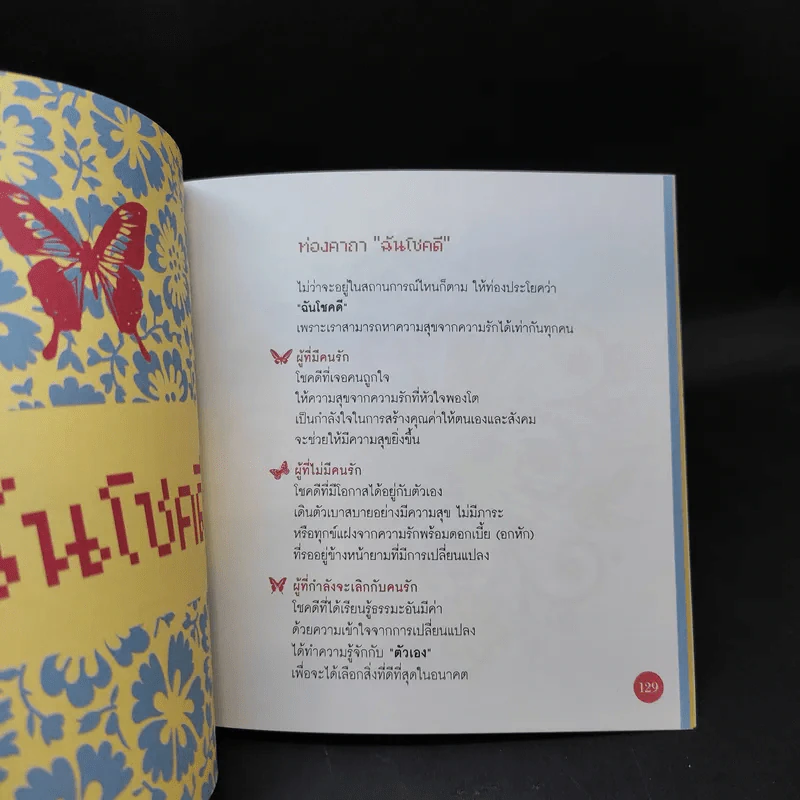 ฉันโชคดี
ท่องคาถา "ฉันโชคดี"
ไม่ว่าจะอยู่ในสถานการณ์ไหนก็ตาม ให้ท่องประโยคว่า
"ฉันโชคดี"
เพราะเราสามารถหาความสุขจากความรักได้เท่ากันทุกคน
ผู้ที่มีคนรัก
โชคดีที่เจอคนถูกใจ
ให้ความสุขจากความรักที่หัวใจพองโต
เป็นกำลังใจในการสร้างคุณค่าให้ตนเองและสังคม
จะช่วยให้มีความสุขยิ่งขึ้น
ผู้ที่ไม่มีคนรัก
โชคดีที่มีโอกาสได้อยู่กับตัวเอง
เดินตัวเบาสบายอย่างมีความสุข ไม่มีภาระ
หรือทุกข์แฝงจากความรักพร้อมดอกเบี้ย (อกหัก)
ที่รออยู่ข้างหน้ายามที่มีการเปลี่ยนแปลง
ผู้ที่กำลังจะเลิกกับคนรัก
โชคดีที่ได้เรียนรู้ธรรมะอันมีค่า
ด้วยความเข้าใจจากการเปลี่ยนแปลง
ได้ทำความรู้จักกับ "ตัวเอง"
เพื่อจะได้เลือกสิ่งที่ดีที่สุดในอนาคต
129